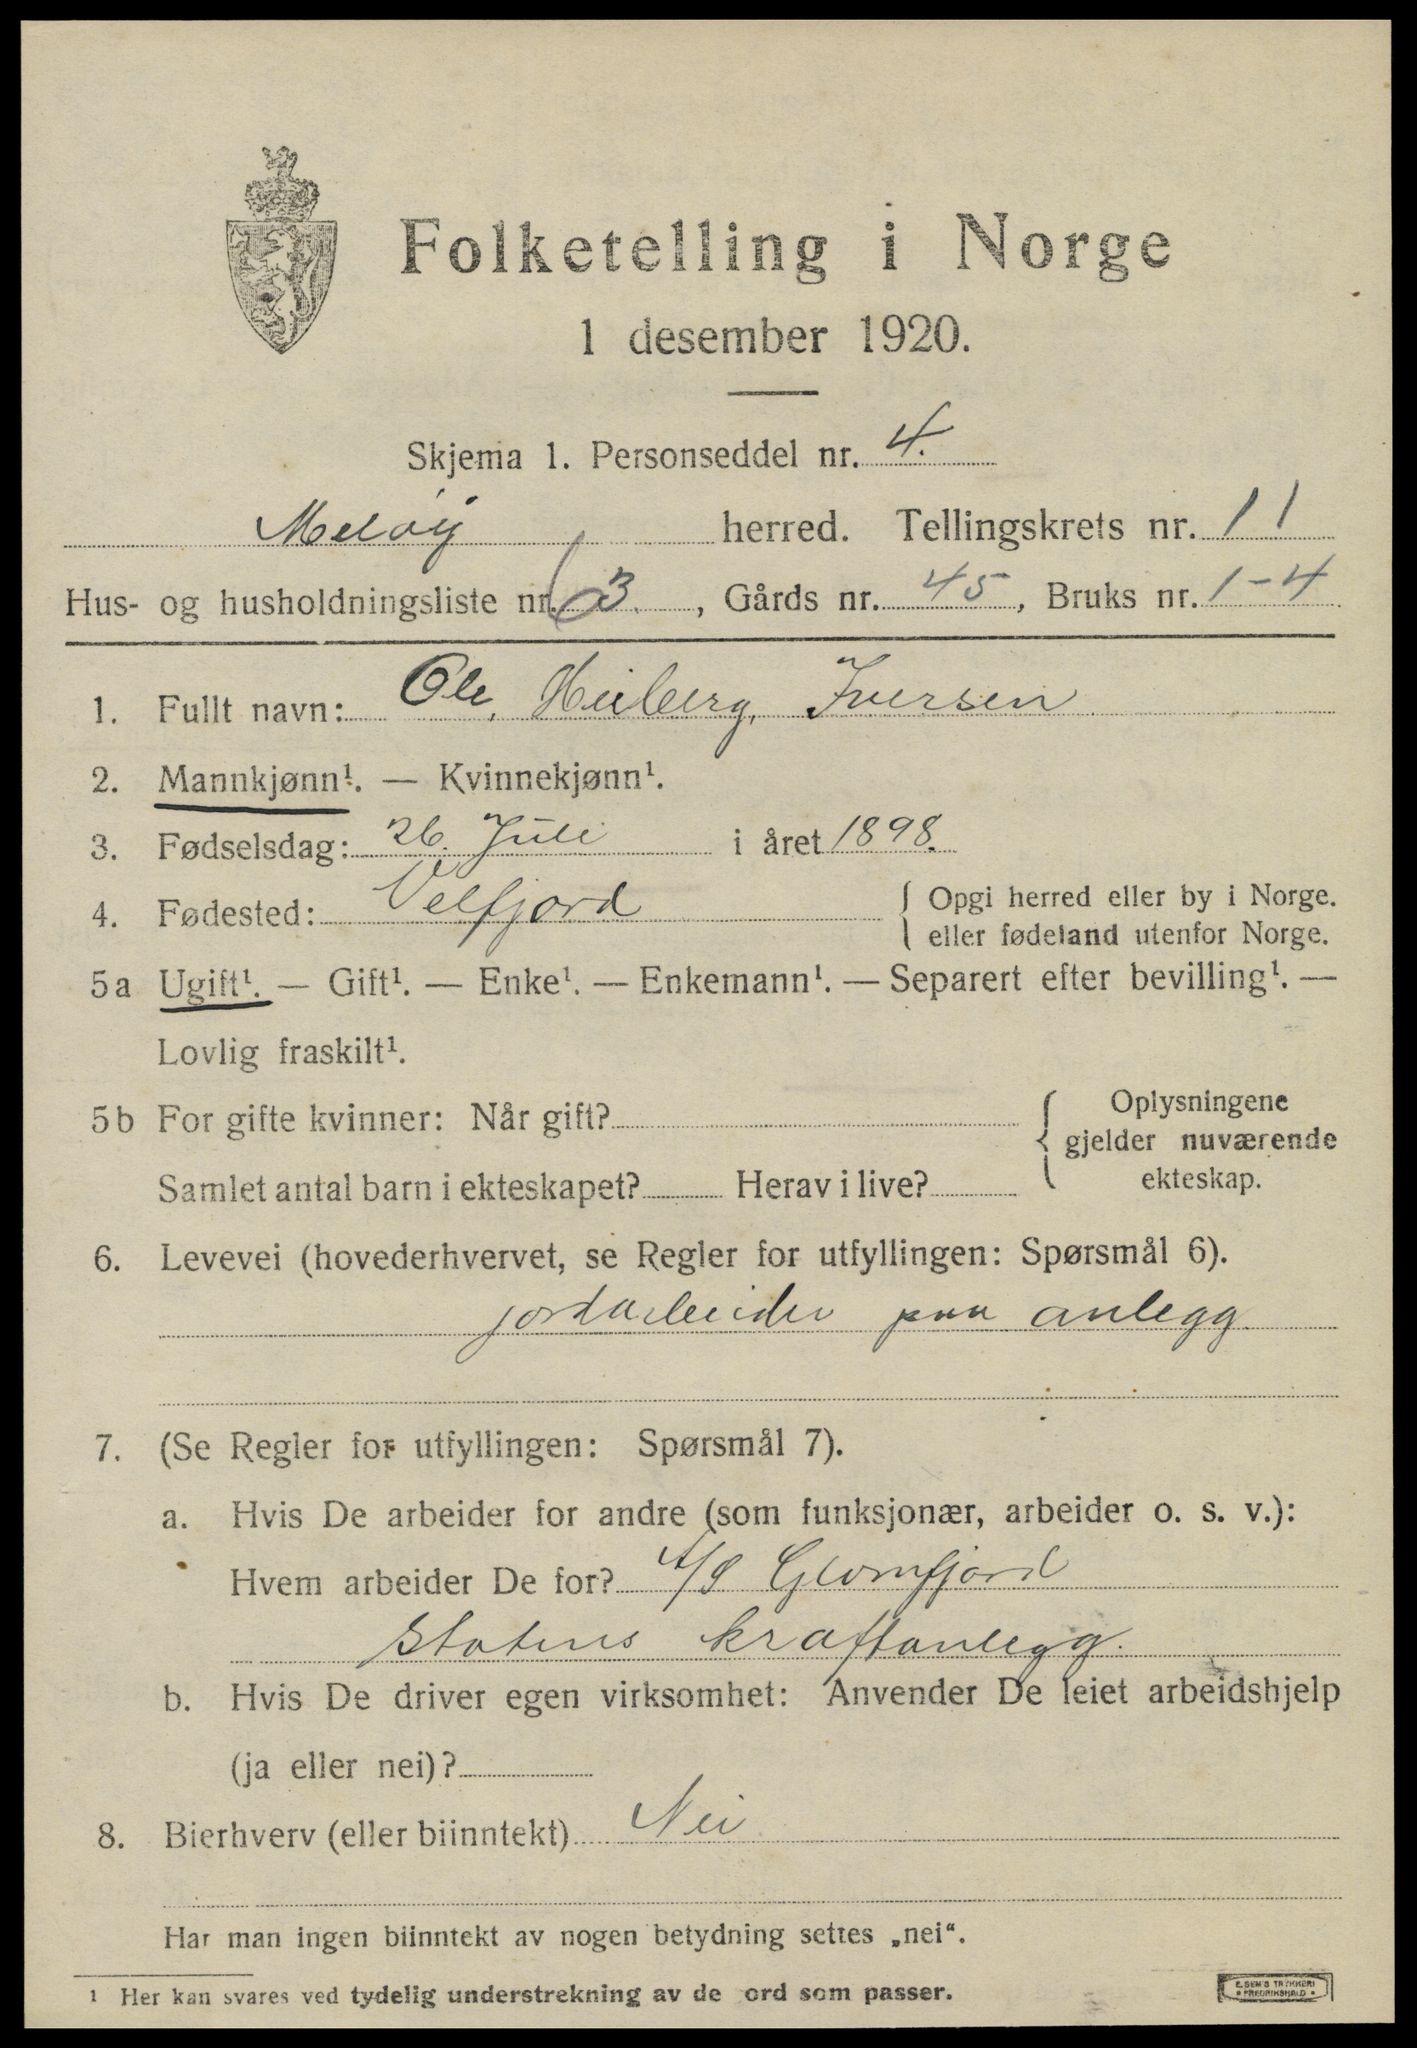 Folketelling i Norge
1 desember 1920.
Skjema 1. Personseddel nr. 4.
Meløy herred. Tellingskrets nr. 11
Hus- og husholdningsliste nr. 3. , Gårds nr. 45, Bruks nr. 1-4
1. Fullt navn: Ole, Heiberg, Iversen
2. Mannkjønn¹. — Kvinnekjønn¹.
3. Fødselsdag: 26. Juli i året 1898.
4. Fødested: Velfjord { Opgi herred eller by i Norge.
eller fødeland utenfor Norge.
5a Ugift¹. — Gift¹. — Enke¹. — Enkemann¹. — Separert efter bevilling¹. —
Lovlig fraskilt¹.
5b For gifte kvinner: Når gift?
Samlet antal barn i ekteskapet? Herav i live?
{ Oplysningene
gjelder nuværende
ekteskap.
6. Levevei (hovederhvervet, se Regler for utfyllingen: Spørsmål 6).
jordarbeider paa anlegg.
7. (Se Regler for utfyllingen: Spørsmål 7).
a. Hvis De arbeider for andre (som funksjonær, arbeider o. s. v.):
Hvem arbeider De for? A/S Glomfjord
Statens kraftanlegg.
b. Hvis De driver egen virksomhet: Anvender De leiet arbeidshjelp
(ja eller nei)?
8. Bierhverv (eller biinntekt) Nei
Har man ingen biinntekt av nogen betydning settes „nei“.
¹ Her kan svares ved tydelig understrekning av de ord som passer.
E. SEM'S TRYKKERI
FREDRIKSHALD